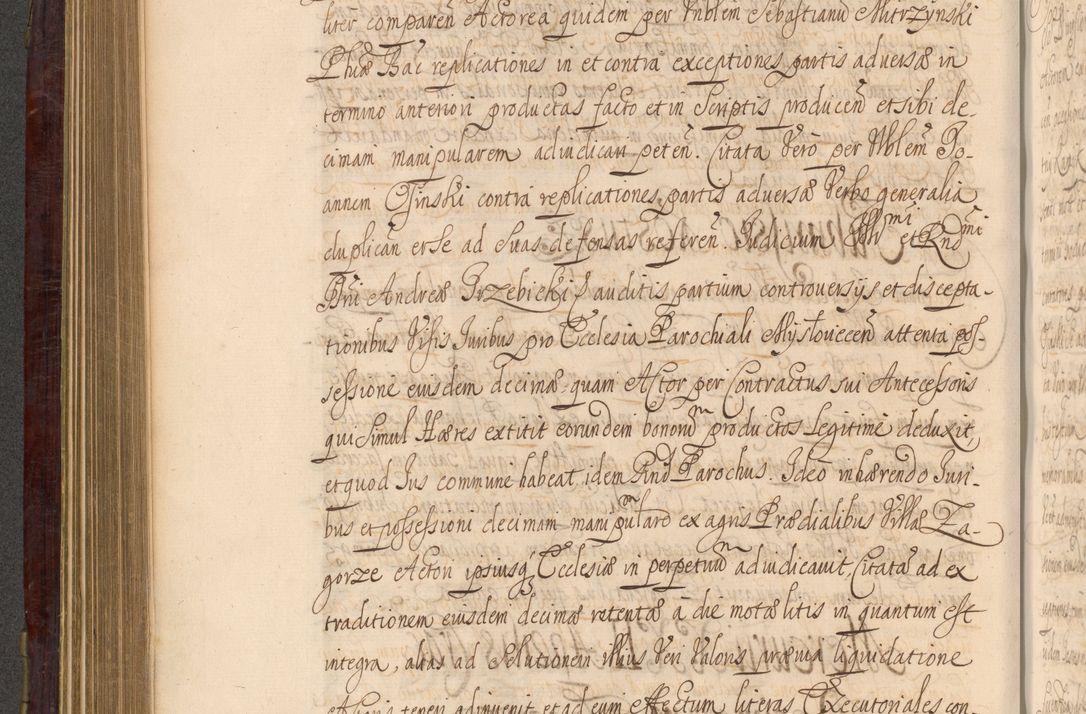 liter comparen̄ Actorea quidem per Nblem Sebastianū Mitrzynski
Phiæ Bac̄ replicationes in et contra exceptiones partis adversæ in
termino anteriori productas facto et in Scriptis producen̄ et sibi de-
cimam manipularem adiudicari peten̄. Citata Verō per Nblem Jo-
annem Osinski contra replicationes partis adversæ Verbo generalia
duplicān et se ad Suas defensas referen̄. Judicium Illmi et Rndmi
Dni Andreæ Trzebicki auditis partium controversijs et discepta-
tionibus Visis Juribus pro Ecclesia Parochiali Mysłovicen̄ attenta pos-
sessione eiusdem decimæ quam Actor per Contractus sui Antecessoris
qui Simul Hæres extitit eorundem bonorum productos Legitimē deduxit,
et quod Jus commune habeat idem Rnd Parochus. Ideo inhærendo Juri-
bus et possessioni decimam manipularem ex agris Prædialibus Villæ Za-
gorze Actori ipsiusq Ecclesiæ in perpetuum adiudicavit, Citatæ ad ex
traditionem eiusdem decimæ retentæ à die motæ litis in quantum est
integra, alias ad Solutionem illius Veri Valoris prævia liquidatione
et Juris teneri adinvenit et ad eum effectum literas Executoriales con